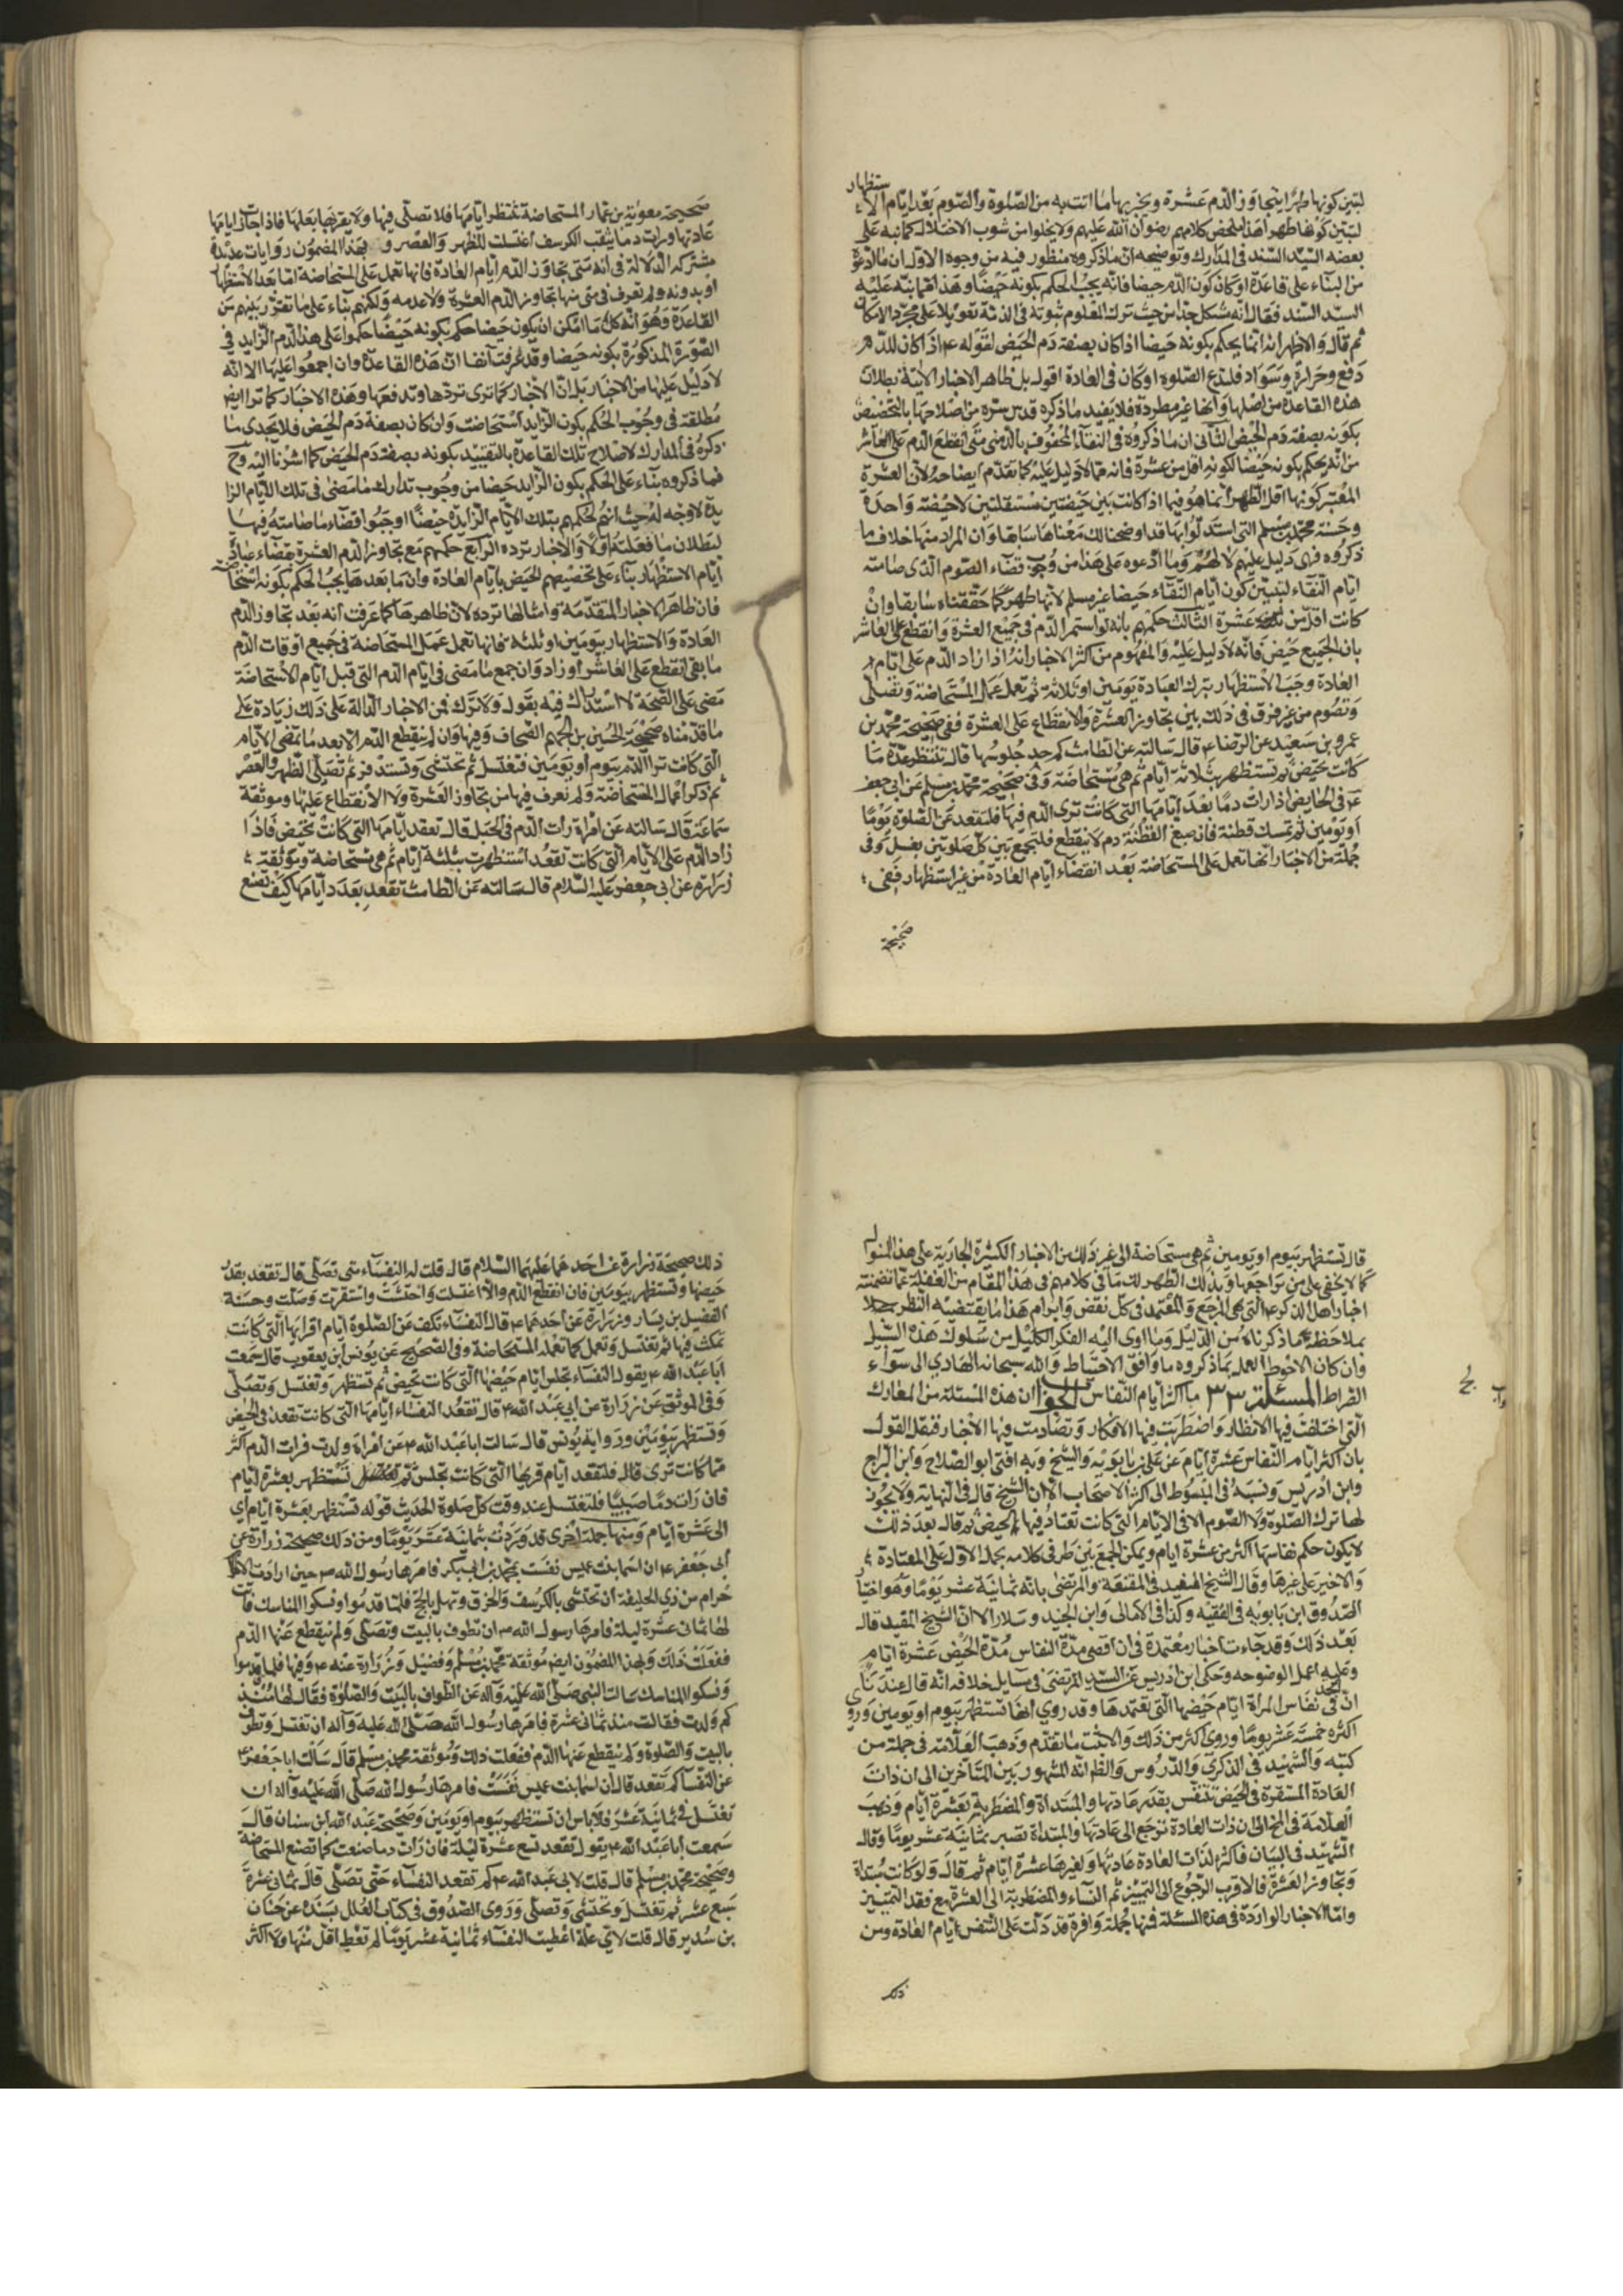 ستظهار
لتبين كونها طهرا بتجاوز الدم عشرة ويجزيها ما اتت به من الصلوة والصوم بعد ايام الا
لتبين كونها طهرا هذا ملخص كلامهم رضوان الله عليهم ولا يخلوا من شوب الاختلال كما نبه على
بعضه السيد السند في المدارك وتوضيحه ان ما ذكروه منظور فيه من وجوه الاول ان ما ادعوه
من البناء على قاعدة او كان كون الدم حيضا فانه يجب الحكم بكونه حيضا وهذا مما نبه عليه
السيد السند فقال انه مشكل جدا من حيث ترك المعلوم ثبوته في الذمة تعويلا على مجرد الامكان
ثم قال والاظهر انه انما يحكم بكونه حيضا اذا كان بصفة دم الحيض لقوله ع اذا كان للدم
دفع وحرارة وسواد فلتدع الصلوة او كان في العادة اقول بل ظاهر الاخبار الاتية بطلان
هذه القاعدة من اصلها وانها غير مطردة فلا يفيد ما ذكره قدس سره من اصلاحها بالتخصيص
بكونه بصفة دم الحيض الثاني ان ما ذكروه في النقاء المحفوف بالدمين متى انقطع الدم على العاشر
من انه يحكم بكونه حيضا لكونه اقل من عشرة فانه مما لا دليل عليه كما تقدم ايضاحه لان العشرة
المعتبر كونها اقل الطهر انما هو فيما اذا كانت بين حيضتين مستقلتين لا حيضة واحدة
وحسنة محمد بن مسلم التي استدلوا بها قد اوضحنا لك معناها سابقا وان المراد منها خلاف ما
ذكروه فهي دليل عليهم لا لهم وما ادعوه على هذا من وجوب قضاء الصوم الذي صامته
ايام النقاء لتبين كون ايام النقاء حيضا غير مسلم لانها طهر كما حققناه سابقا وان
كانت اقل من عشرة الثالث حكمهم بانه لو استمر الدم في جميع العشرة وانقطع على العاشر
بان الجميع حيض فانه لا دليل عليه والمفهوم من اكثر الاخبار انه اذا زاد الدم على ايام
العادة وجب الاستظهار بترك العبادة يومين او ثلاثة ثم تعمل عمل المستحاضة وتصلي
وتصوم من غير فرق في ذلك بين تجاوز العشرة والانقطاع على العشرة ففي صحيحة محمد بن
عمرو بن سعيد عن الرضا ع قال سالته عن الطامث كم حد جلوسها قال تنتظر عدة ما
كانت تحيض ثم تستظهر بثلاثة ايام ثم هي مستحاضة وفي صحيحة محمد بن مسلم عن ابي جعفر
ع في الحايض اذا رات دما بعد ايامها التي كانت ترى الدم فيها فلتقعد عن الصلوة يوما
او يومين ثم تمسك قطنة فان صبغ القطنة دم لا ينقطع فلتجمع بين كل صلوتين بغسل وفي
جملة من الاخبار انها تعمل عمل المستحاضة بعد انقضاء ايام العادة من غير استظهار ففي
صحيحة
صحيحة معوية بن عمار المستحاضة تنتظر ايامها فلا تصلي فيها ولا يقربها بعلها فاذا جازت ايامها
عادتها ورات دما يثقب الكرسف اغتسلت للظهر والعصر و بهذا المضمون روايات عديدة
مشتركة الدلالة في انه متى تجاوز الدم ايام العادة فانها تعمل عمل المستحاضة اما بعد الاستظهار
او بدونه ولم تعرف في متى منها بتجاوز الدم العشرة ولا عدمه ولكنهم بناء على ما تقرر بينهم من
القاعدة وهو انه كل ما امكن ان يكون حيضا حكم بكونه حيضا حكموا على هذا الدم الزايد في
الصورة المذكورة بكونه حيضا وقد عرفت آنفا ان هذه القاعدة وان اجمعوا عليها الا انه
لا دليل عليها من الاخبار بل ان الاخبار كما ترى تردها وتدفعها وهذه الاخبار كما ترا ايض
مطلقة في وجوب الحكم بكون الزايد استحاضة وان كان بصفة دم الحيض فلا يجدي ما
ذكره في المدارك لاصلاح تلك القاعدة بالتقييد بكونه بصفة دم الحيض كما اشرنا اليه وح
فما ذكروه بناء على الحكم بكون الزايد حيضا من وجوب تدارك ما مضى في تلك الايام الزا
يدة لا وجه له حيث انهم لحكمهم بتلك الايام الزايدة حيضا اوجبوا قضاء ما صامته فيها
لبطلان ما فعلته اولا والاخبار ترده الرابع حكمهم مع تجاوز الدم العشرة بقضاء عبادة
ايام الاستظهار بناء على تخصيصهم الحيض بايام العادة وان ما بعدها يجب الحكم بكونه استحاضة
فان ظاهر الاخبار المتقدمة وامثالها ترده لان ظاهرها كما عرفت انه بعد تجاوز الدم
العادة والاستظهار بيومين او ثلثة فانها تعمل عمل المستحاضة في جميع اوقات الدم
ما بقي انقطع على العاشر او زاد وان جمع ما مضى في ايام الدم التي قبل ايام الاستحاضة
مضى على الصحة لا استدراك فيه بقول ولا ترك فمن الاخبار الدالة على ذلك زيادة على
ما قدمناه صحيحة الحسين بن نعيم الصحاف وفيها وان لم ينقطع الدم الا بعد ما تمضي الايام
التي كانت ترا الدم بيوم او يومين فتغتسل ثم تحتشي وتستذفر ثم تصلي الظهر والعصر
ثم ذكر اعمال المستحاضة ولم تعرف فيها من تجاوز العشرة ولا الانقطاع عليها وموثقة
سماعة قال سالته عن امراة رات الدم في الحبل قال تقعد ايامها التي كانت تحيض فاذا
زاد الدم على الايام التي كانت تقعد استظهرت بثلثة ايام ثم هي مستحاضة وموثقة
زرارة عن ابي جعفر عليه السلام قال سالته عن الطامث تقعد بعدد ايامها كيف تصنع
قال تستظهر بيوم او يومين ثم هي مستحاضة الى غير ذلك من الاخبار الكثيرة الجارية على هذا المنوال
كما لا يخفى على من راجعها وبذلك الظهر لك ما في كلامهم في هذا المقام من الغفلة عما تضمنته
اخبار اهل الذكر ع التي هي المرجع والمعتمد في كل نقض وابرام هذا ما يقتضيه النظر
بملاحظة ما ذكرناه من الدليل وما اوى اليه الفكر الكليل من سلوك هذه السبيل
وان كان الاحوط العمل بما ذكروه ما وافق الاحتياط والله سبحانه الهادي الى سواء
الصراط المسئلة ٣٣ ما اكثر ايام النفاس الجواب ان هذه المسئلة من المعارك
التي اختلفت فيها الانظار واضطربت فيها الافكار وتصادمت فيها الاخبار فنقل القول
بان اكثر ايام النفاس عشرة ايام عن علي بن بابويه والشيخ وبه افتى ابو الصلاح وابن البراج
وابن ادريس ونسبه في المبسوط الى اكثر الاصحاب الا ان الشيخ قال في النهاية ولا يجوز
لها ترك الصلوة ولا الصوم الا في الايام التي كانت تعتاد فيها الحيض ثم قال بعد ذلك
لا يكون حكم نفاسها اكثر من عشرة ايام ويمكن الجمع بين طرفي كلامه بحمل الاول على المعتادة
والاخير على غيرها وقال الشيخ المفيد في المقنعة والمرتضى بانه ثمانية عشر يوما وهو اختيار
الصدوق ابن بابويه في الفقيه وكذا في الامالي وابن الجنيد وسلار الا ان الشيخ المفيد قال
بعد ذلك وقد جاءت اخبار معتمدة في ان اقصى مدة النفاس مدة الحيض عشرة ايام
وعليه اعمل لوضوحه وحكى ابن ادريس عن السيد المرتضى في مسايل خلافه انه قال عندنا
الحد
ان في نفاس المراة ايام حيضها التي تعتمدها وقد روي انها تستظهر بيوم او يومين وروي
اكثره خمسة عشر يوما وروي اكثر من ذلك والاثبت ما تقدم وذهب العلامة في جملة من
كتبه والشهيد في الذكرى والدروس والظ انه المشهور بين المتاخرين الى ان ذات
العادة المستقرة في الحيض تتنفس بقدر عادتها والمبتداة والمضطربة بعشرة ايام وذهب
العلامة في المخ الى ان ذات العادة ترجع الى عادتها والمبتداة تصبر ثمانية عشر يوما وقال
الشهيد في البيان فاكثره لذات العادة عادتها ولغيرها عشرة ايام ثم قال ولو كانت مبتداة
وتجاوز العشرة فالاقرب الرجوع الى التمييز ثم النساء والمضطربة الى العشرة مع فقد التمييز
واما الاخبار الواردة في هذه المسئلة فمنها جملة وافرة قد دلت على التنفس ايام العادة ومن
ذلك
ذلك صحيحة زرارة عن احدهما عليهما السلام قال قلت له النفساء متى تصلي قال تقعد بقدر
حيضها وتستظهر بيومين فان انقطع الدم والا اغتسلت واحتشت واستقرت وصلت وحسنة
الفضيل بن يسار وزرارة عن احدهما ع قال النفساء تكف عن الصلوة ايام اقرايها التي كانت
تمكث فيها ثم تغتسل وتعمل كما تعمله المستحاضة وفي الصحيح عن يونس ابن يعقوب قال سمعت
ابا عبد الله ع يقول النفساء تجلس ايام حيضها التي كانت تحيض ثم تستظهر وتغتسل وتصلي
وفي الموثق عن زرارة عن ابي عبد الله ع قال تقعد النفساء ايامها التي كانت تقعد في الحيض
وتستظهر بيومين ورواية يونس قال سالت ابا عبد الله ع عن امراة ولدت فرات الدم اكثر
مما كانت ترى قال فلتقعد ايام قريها التي كانت تجلس ثم تستظهر بعشرة ايام
فان رات دما صبيبا فلتغتسل عند وقت كل صلوة الحديث قوله تستظهر بعشرة ايام اي
الى عشرة ايام ومنها جملة اخرى قد وردت بثمانية عشر يوما ومن ذلك صحيحة زرارة عن
ابي جعفر ع ان اسما بنت عميس نفست بمحمد بن ابي بكر فامرها رسول الله ص حين ارادت الا
حرام من ذي الحليفة ان تحتشي بالكرسف والخرق وتهل بالحج فلما قدموا ونسكوا المناسك فات
لها ثماني عشرة ليلة فامرها رسول الله ص ان تطوف بالبيت وتصلي ولم ينقطع عنها الدم
ففعلت ذلك وبهذا المضمون ايض موثقة محمد بن مسلم وفضيل وزرارة عنه ع وفيها فلما قدموا
ونسكوا المناسك سالت النبي صلى الله عليه وآله عن الطواف بالبيت والصلوة فقال لها منذ
كم ولدت فقالت منذ ثماني عشرة فامرها رسول الله صلى الله عليه وآله ان تغتسل وتطوف
بالبيت والصلوة ولم ينقطع عنها الدم ففعلت ذلك وموثقة محمد بن مسلم قال سالت ابا جعفر ع
عن النفساء كم تقعد قال ان اسما بنت عميس نفست فامرها رسول الله صلى الله عليه وآله ان
تغتسل في ثمانية عشر فلا باس ان تستظهر بيوم او يومين وصحيحة عبد الله ابن سنان قال
سمعت ابا عبد الله ع يقول تقعد تسع عشرة ليلة فان رات دما صنعت كما تصنع المستحاضة
وصحيحة محمد بن مسلم قال قلت لابي عبد الله ع كم تقعد النفساء حتى تصلي قال ثماني عشرة
سبع عشر ثم تغتسل وتحتشي وتصلي وروى الصدوق في كتاب العلل بسنده عن حنان
بن سدير قال قلت لاي علة اعطيت النفساء ثمانية عشر يوما لم تعط اقل منها ولا اكثر